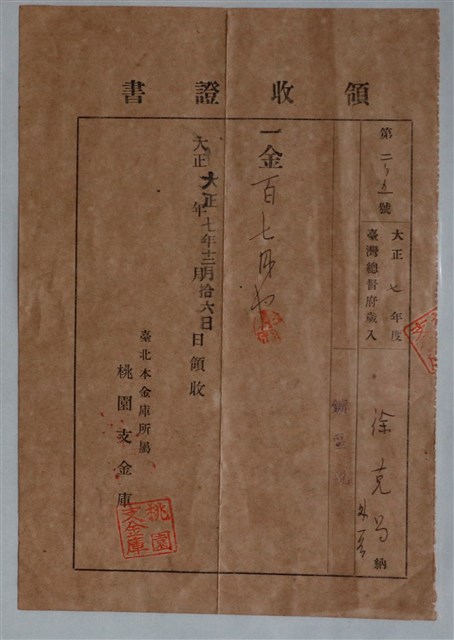 領收證書
第二〇五號
大正七年度
臺灣總督府歲入
徐克昌納
外一名
一金百七
大正 年 月 日領收
大正七年十二月拾六日
臺北本金庫所屬
桃園支金庫
桃園支金庫